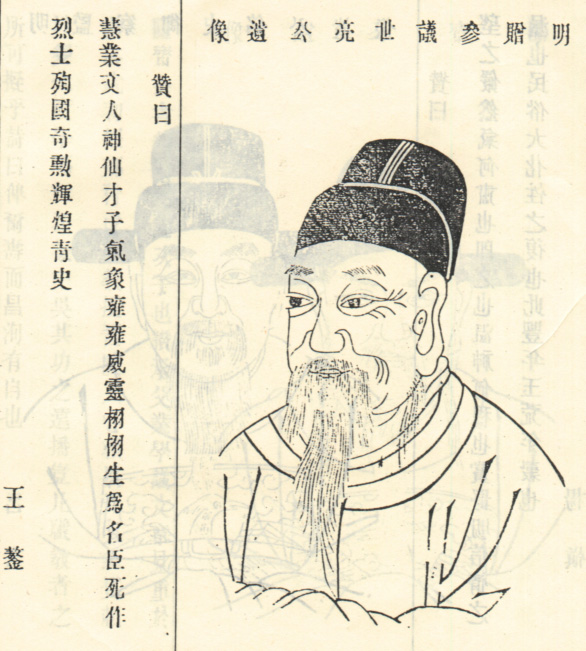 明贈參議世亮公遺像
贊曰
慧業文人神仙才子氣象雍雍威靈栩栩生爲名臣死作
烈士殉國奇勲輝煌青史
王鏊